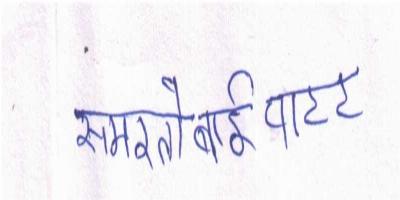 समरतो बाई पाटट